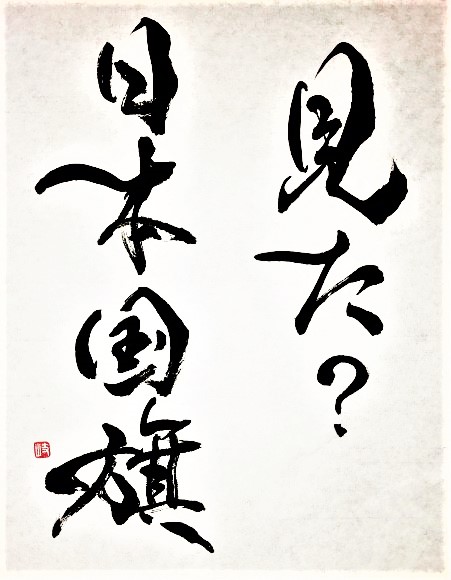 見た?
日本国旗